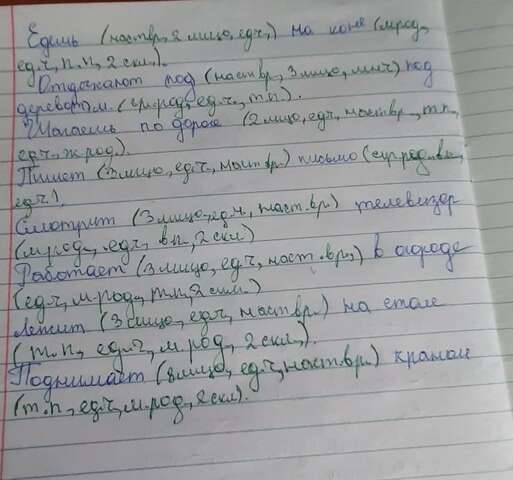 Едешь (наст.вр., 2 лицо, ед.ч.,) на коне (м.род.,
ед.ч, п.п, 2 скл.).
Отдыхают под (наст.вр., 3 лицо, мн.ч) под
деревом. (ср.род, ед.ч., т.п.).
Шагаешь по дороге (2 лицо, ед.ч, наст.вр., т.п,
ед.ч, ж.род.).
Пишет (3 лицо, ед.ч, наст.вр.) письмо (ср.род., в.п.,
ед.ч).
Смотрит (3 лицо, ед.ч, наст.вр.) телевизор
(м.род., ед.ч, в.п, 2 скл)
Работает (3 лицо, ед.ч, наст.вр.) в огороде
(ед.ч, м.род., т.п, 2 скл.)
Лежит (3 лицо, ед.ч, наст.вр.) на столе
(т.п, ед.ч, м.род, 2 скл,).
Поднимает (3 лицо, ед.ч, наст.вр.) краном
(т.п, ед.ч, м.род, 2 скл).